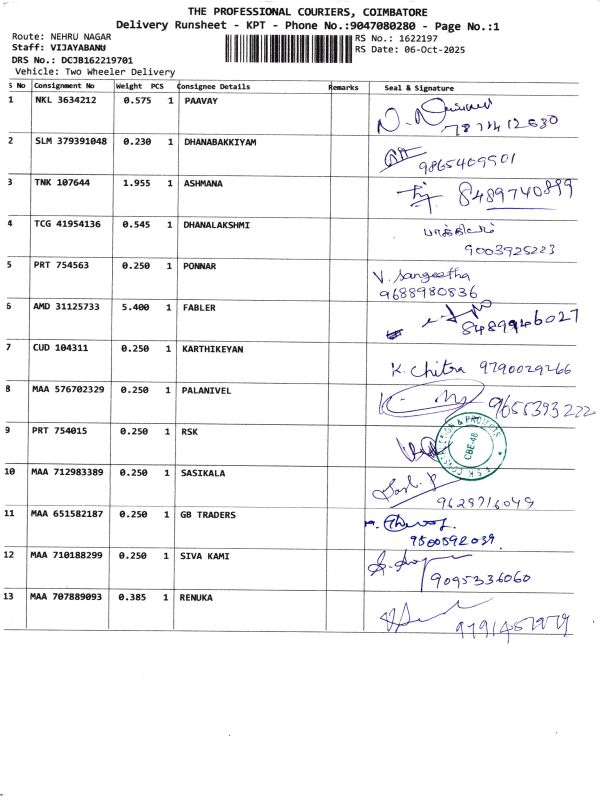 THE PROFESSIONAL COURIERS, COIMBATORE
Delivery Runsheet - KPT - Phone No.:9047080280 - Page No.:1
Route: NEHRU NAGAR RS No.: 1622197
Staff: VIJAYABANU RS Date: 06-Oct-2025
DRS No.: DCJB162219701
Vehicle: Two Wheeler Delivery
S No Consignment No Weight PCS Consignee Details Remarks Seal & Signature
1 NKL 3634212 0.575 1 PAAVAY
2 SLM 379391048 0.230 1 DHANABAKKIYAM
9865409501
3 TNK 107644 1.955 1 ASHMANA 8489740899
4 TCG 41954136 0.545 1 DHANALAKSHMI
9003925223
5 PRT 754563 0.250 1 PONNAR V. Sangeetha
9688980836
6 AMD 31125733 5.400 1 FABLER
8489946027
7 CUD 104311 0.250 1 KARTHIKEYAN
K. Chitra 9790029266
8 MAA 576702329 0.250 1 PALANIVEL
9655393222
9 PRT 754015 0.250 1 RSK
CBE-48
10 MAA 712983389 0.250 1 SASIKALA
9629716049
11 MAA 651582187 0.250 1 GB TRADERS
9500592039
12 MAA 710188299 0.250 1 SIVA KAMI
9095336060
13 MAA 707889093 0.385 1 RENUKA
9791457979